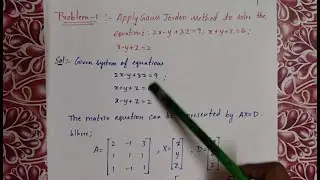 Problem-1 :- Apply Gauss Jordan method to solve the
equations : 2x-y+3z=9; x+y+z=6;
x-y+z=2
Sol:- Given system of equations
2x-y+3z=9 ;
x+y+z =
x-y+z=2
The matrix equation can be represented by AX=D.
Where,
A= [ 2 -1 3 , X= [ x
1 1 1 y
1 -1 1 ] z ]